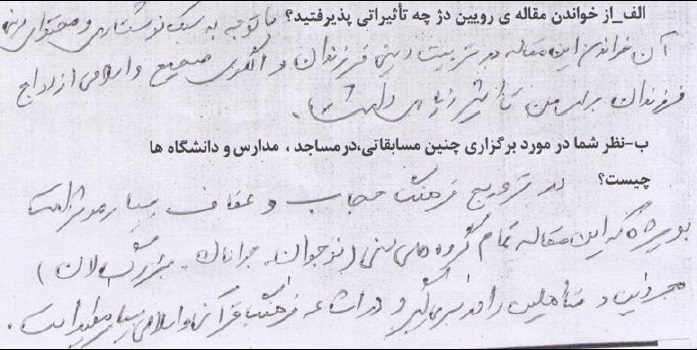 الف_از خواندن مقاله ی رویین دژ چه تأثیراتی پذیرفتید؟ با توجه به سبک نوشتاری و محتوای
آن خواندن این مقاله در تربیت دینی فرزندان و الگوی صحیح و اسلامی ازدواج
فرزندان برای من تأثیر زیادی داشت.
ب–نظر شما در مورد برگزاری چنین مسابقاتی،درمساجد ، مدارس و دانشگاه ها
چیست؟ در ترویج فرهنگ حجاب و عفاف بسیار موثر است
بویژه که این مقاله تمام گروه های سنی (نوجوان، جوانان، بزرگسالان)
مجردین و متأهلین را در برمی گیرد و در اشاعه فرهنگ قرآنی و اسلامی بسیار مفید است.